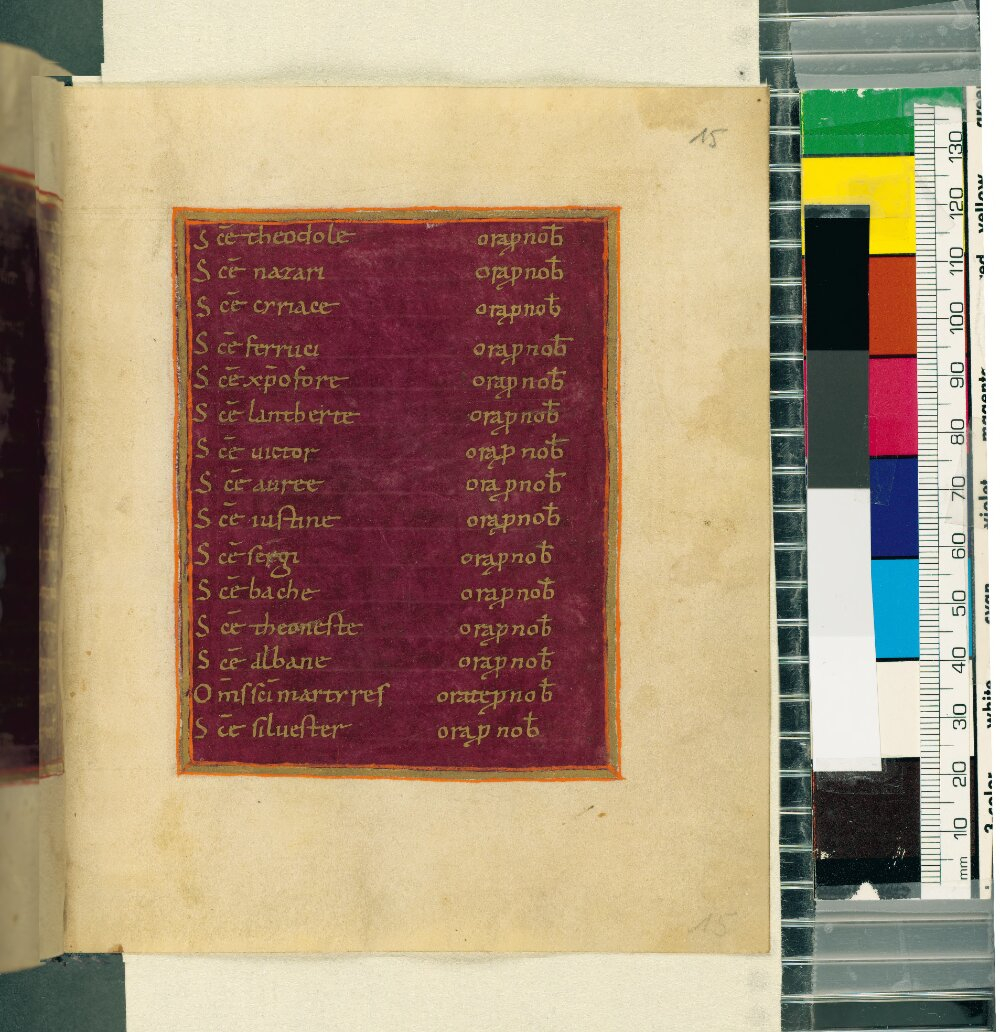 15
S cē theodole orapnob̄
S cē nazari orapnob̄
S cē cyriace orapnob̄
S cē ferruci orapnob̄
S cē xp̄ofore orapnob̄
S cē lantberte orapnob̄
S cē uictor orap nob̄
S cē auree ora pnob̄
S cē iustine orapnob̄
S cē sergi orapnob̄
S cē bache orapnob̄
S cē theoneste orapnob̄
S cē albane orapnob̄
O m̄s sc̄i martyres oratepnob̄
S cē siluester orap nob̄
15
130
120
110
100
90
80
70
60
50
40
30
20
10
mm
yellow
magenta
violet
cyan
white
3-color